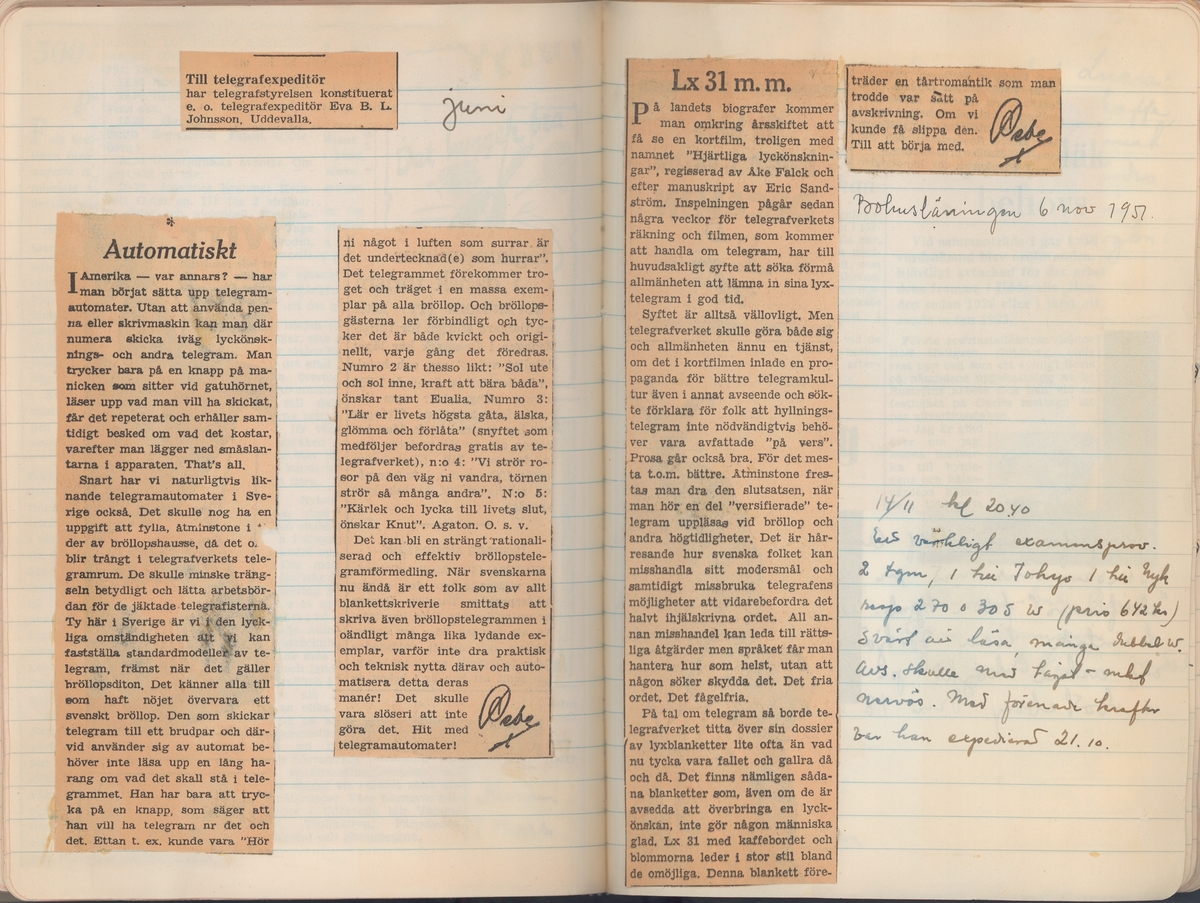 Till telegrafexpeditör
har telegrafstyrelsen konstituerat
e. o. telegrafexpeditör Eva B. L.
Johnsson, Uddevalla.
juni
*
Automatiskt
I Amerika — var annars? — har
man börjat sätta upp telegram-
automater. Utan att använda pen-
na eller skrivmaskin kan man där
numera skicka iväg lyckönsk-
nings- och andra telegram. Man
trycker bara på en knapp på ma-
nicken som sitter vid gatuhörnet,
läser upp vad man vill ha skickat,
får det repeterat och erhåller sam-
tidigt besked om vad det kostar,
varefter man lägger ned småslan-
tarna i apparaten. That's all.
Snart har vi naturligtvis lik-
nande telegramautomater i Sve-
rige också. Det skulle nog ha en
uppgift att fylla, åtminstone i
der av bröllopshausse, då det
blir trångt i telegrafverkets tele-
gramrum. De skulle minske träng-
seln betydligt och lätta arbetsbör-
dan för de jäktade telegrafisterna.
Ty här i Sverige är vi i den lyck-
liga omständigheten att vi kan
fastställa standardmodeller av te-
legram, främst när det gäller
bröllopsditon. Det känner alla till
som haft nöjet övervara ett
svenskt bröllop. Den som skickar
telegram till ett brudpar och där-
vid använder sig av automat be-
höver inte läsa upp en lång ha-
rang om vad det skall stå i tele-
grammet. Han har bara att tryc-
ka på en knapp, som säger att
han vill ha telegram nr det och
det. Ettan t. ex. kunde vara "Hör
ni något i luften som surrar är
det undertecknad(e) som hurrar".
Det telegrammet förekommer tro-
get och träget i en massa exem-
plar på alla bröllop. Och bröllops-
gästerna ler förbindligt och tyc-
ker det är både kvickt och origi-
nellt, varje gång det föredras.
Numro 2 är thesso likt: "Sol ute
och sol inne, kraft att bära båda",
önskar tant Eualia. Numro 3:
"Lär er livets högsta gåta, älska,
glömma och förlåta" (snyftet som
medföljer befordras gratis av te-
legrafverket), n:o 4: "Vi strör ro-
sor på den väg ni vandra, törnen
strör så många andra". N:o 5:
"Kärlek och lycka till livets slut,
önskar Knut". Agaton. O. s. v.
Det kan bli en strängt rationali-
serad och effektiv bröllopstele-
gramförmedling. När svenskarna
nu ändå är ett folk som av allt
blankettskriverie smittats att
skriva även bröllopstelegrammen i
oändligt många lika lydande ex-
emplar, varför inte dra praktisk
och teknisk nytta därav och auto-
matisera detta deras
manér! Det skulle
vara slöseri att inte
göra det. Hit med
telegramautomater!
Lx 31 m. m.
På landets biografer kommer
man omkring årsskiftet att
få se en kortfilm, troligen med
namnet "Hjärtliga lyckönsknin-
gar", regisserad av Åke Falck och
efter manuskript av Eric Sand-
ström. Inspelningen pågår sedan
några veckor för telegrafverkets
räkning och filmen, som kommer
att handla om telegram, har till
huvudsakligt syfte att söka förmå
allmänheten att lämna in sina lyx-
telegram i god tid.
Syftet är alltså vällovligt. Men
telegrafverket skulle göra både sig
och allmänheten ännu en tjänst,
om det i kortfilmen inlade en pro-
paganda för bättre telegramkul-
tur även i annat avseende och sök-
te förklara för folk att hyllnings-
telegram inte nödvändigtvis behö-
ver vara avfattade "på vers".
Prosa går också bra. För det mes-
ta t.o.m. bättre. Åtminstone fres-
tas man dra den slutsatsen, när
man hör en del "versifierade" te-
legram uppläsas vid bröllop och
andra högtidligheter. Det är hår-
resande hur svenska folket kan
misshandla sitt modersmål och
samtidigt missbruka telegrafens
möjligheter att vidarebefordra det
halvt ihjälskrivna ordet. All an-
nan misshandel kan leda till rätts-
liga åtgärder men språket får man
hantera hur som helst, utan att
någon söker skydda det. Det fria
ordet. Det fågelfria.
På tal om telegram så borde te-
legrafverket titta över sin dossier
av lyxblanketter lite ofta än vad
nu tycka vara fallet och gallra då
och då. Det finns nämligen såda-
na blanketter som, även om de är
avsedda att överbringa en lyck-
önskan, inte gör någon människa
glad. Lx 31 med kaffebordet och
blommorna leder i stor stil bland
de omöjliga. Denna blankett före-
träder en tårtromantik som man
trodde var satt på
avskrivning. Om vi
kunde få slippa den.
Till att börja med.
Bohusläningen 6 nov 1951.
14/11 kl 20.40
Ett verkligt examensprov.
2 tgm, 1 till Tokyo 1 till Nyk
resp 270 o 305 w (pris 642 kr)
Svårt att läsa, många dubbel w.
Avs. skulle med tåget - mkt
nervös. Med förenade krafter
var han expedierad 21.10.